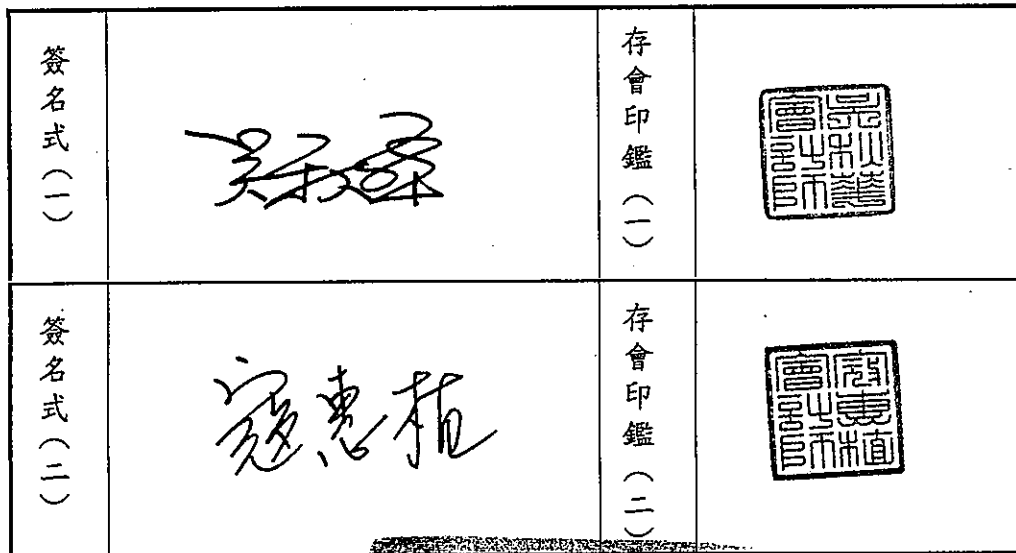 簽名式（一）
吳秋華
存會印鑑（一）
吳秋華會計師
簽名式（二）
寇惠植
存會印鑑（二）
寇惠植會計師